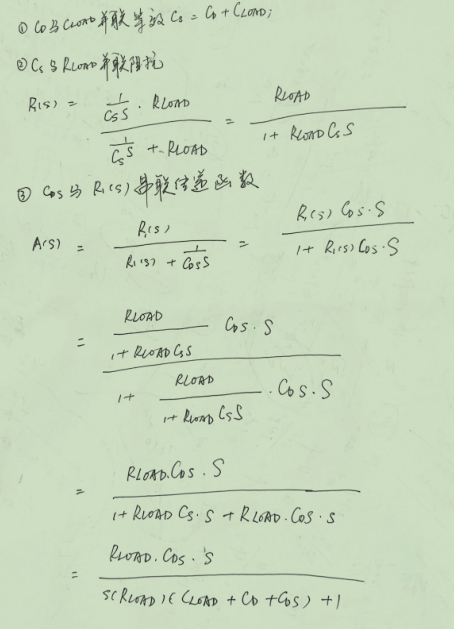 ① C0与CLOAD并联等效 Cs = C0 + CLOAD;
② Cs与RLOAD并联阻抗
R(s) = (1/(CsS) · RLOAD) / (1/(CsS) + RLOAD) = RLOAD / (1 + RLOAD CsS)
③ Cos与R(s)串联传递函数
A(s) = R(s) / (R(s) + 1/(CosS)) = R(s) Cos·S / (1 + R(s) Cos·S)
= (RLOAD / (1 + RLOAD CsS) Cos·S) / (1 + RLOAD / (1 + RLOAD CsS) · Cos·S)
= RLOAD·Cos·S / (1 + RLOAD Cs·S + RLOAD·Cos·S)
= RLOAD·Cos·S / (S(RLOAD)(CLOAD + C0 + Cos) + 1)